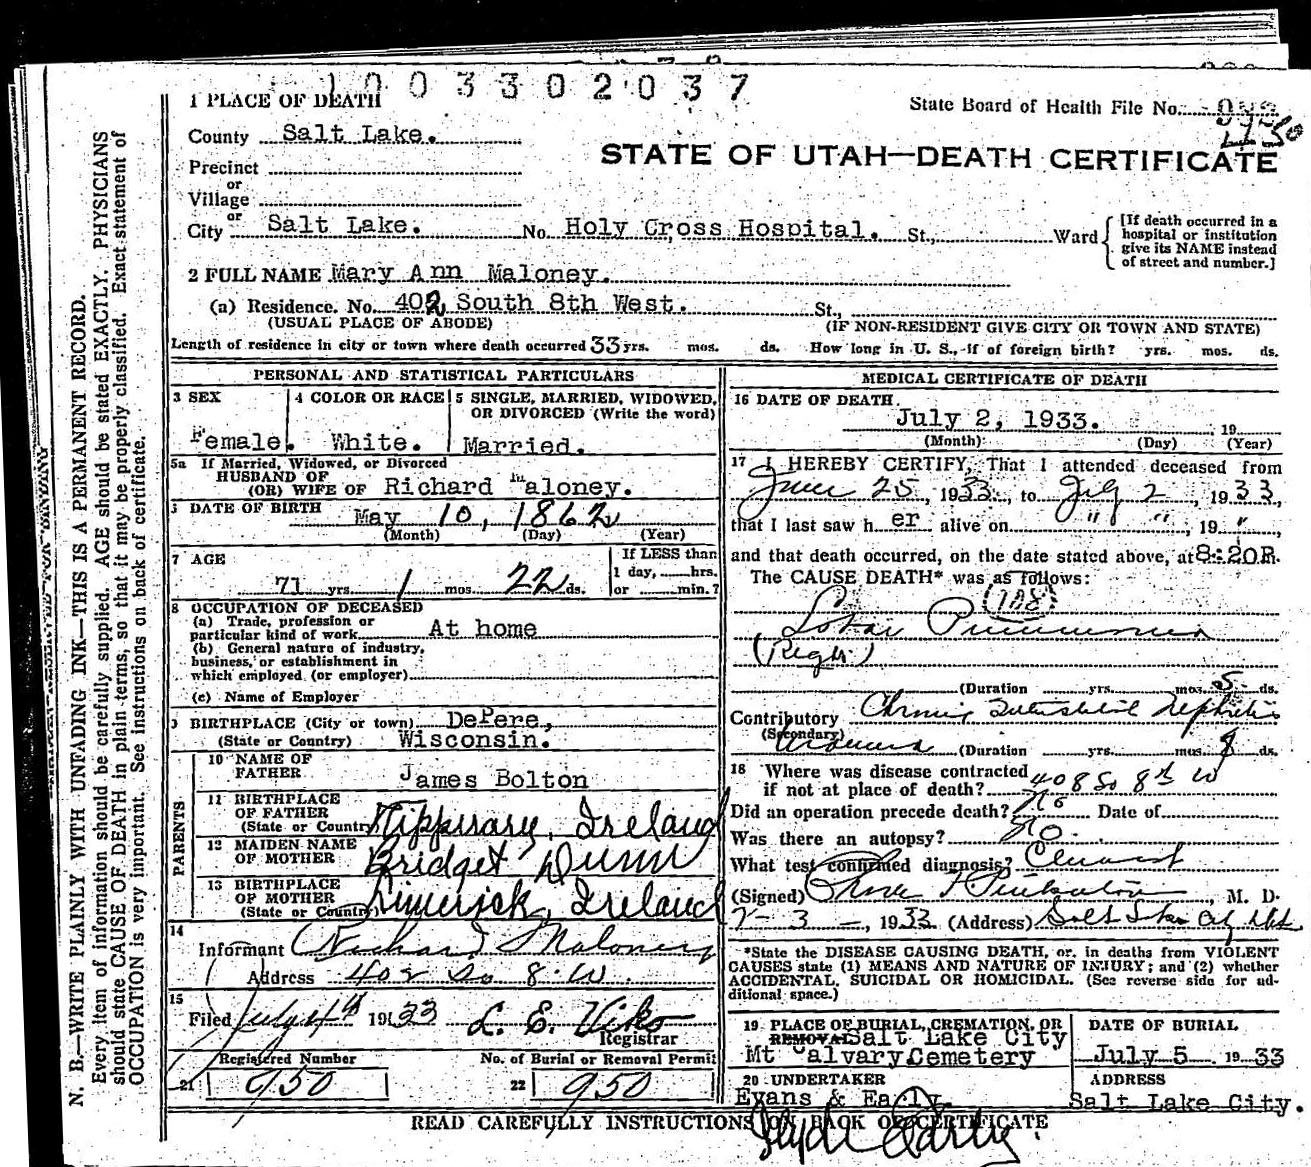 1003302037
1 PLACE OF DEATH
State Board of Health File No.
County Salt Lake.
STATE OF UTAH—DEATH CERTIFICATE
Precinct
or
Village
or
City Salt Lake. No. Holy Cross Hospital. St., Ward
[If death occurred in a hospital or institution give its NAME instead of street and number.]
2 FULL NAME Mary Ann Maloney.
(a) Residence. No. 402 South 8th West. St.,
(USUAL PLACE OF ABODE) (IF NON-RESIDENT GIVE CITY OR TOWN AND STATE)
Length of residence in city or town where death occurred 33 yrs. mos. ds. How long in U. S., if of foreign birth? yrs. mos. ds.
PERSONAL AND STATISTICAL PARTICULARS
3 SEX 4 COLOR OR RACE 5 SINGLE, MARRIED, WIDOWED, OR DIVORCED (Write the word)
Female. White. Married.
5a If Married, Widowed, or Divorced
HUSBAND OF
(OR) WIFE OF Richard Maloney.
DATE OF BIRTH May 10, 1862
(Month) (Day) (Year)
7 AGE If LESS than
71 yrs. 1 mos. 22 ds. 1 day, hrs. or min.?
8 OCCUPATION OF DECEASED
(a) Trade, profession or
particular kind of work At home
(b) General nature of industry,
business, or establishment in
which employed (or employer)
(c) Name of Employer
9 BIRTHPLACE (City or town) DePere,
(State or Country) Wisconsin.
PARENTS
10 NAME OF
FATHER James Bolton
11 BIRTHPLACE
OF FATHER
(State or Country) Tipperary, Ireland
12 MAIDEN NAME
OF MOTHER Bridget Dunn
13 BIRTHPLACE
OF MOTHER
(State or Country) Limerick, Ireland
14
Informant Richard Maloney
Address 402 So 8 W
15
Filed July 4th 1933 L. E. Viko
Registrar
Registered Number No. of Burial or Removal Permit
21 950 22 950
MEDICAL CERTIFICATE OF DEATH
16 DATE OF DEATH
July 2, 1933. 19
(Month) (Day) (Year)
17 I HEREBY CERTIFY, That I attended deceased from
June 25, 1933, to July 2, 1933,
that I last saw her alive on " ", 19 "
and that death occurred, on the date stated above, at 8:20P.
The CAUSE DEATH* was as follows:
(108)
Lobar Pneumonia
(Right)
(Duration yrs. mos. 5 ds.
Contributory Chronic Interstitial Nephritis
(Secondary) Uraemia (Duration yrs. mos. 8 ds.
18 Where was disease contracted
if not at place of death? 408 So 8th W
Did an operation precede death? No Date of
Was there an autopsy? No.
What test confirmed diagnosis? Clinical
(Signed) M. D.
7-3-, 1933 (Address) Salt Lake City Utah
*State the DISEASE CAUSING DEATH, or, in deaths from VIOLENT
CAUSES state (1) MEANS AND NATURE OF INJURY; and (2) whether
ACCIDENTAL, SUICIDAL OR HOMICIDAL. (See reverse side for ad-
ditional space.)
19 PLACE OF BURIAL, CREMATION, OR
REMOVAL Salt Lake City
Mt Calvary Cemetery
DATE OF BURIAL
July 5 1933
20 UNDERTAKER
Evans & Early
ADDRESS
Salt Lake City.
READ CAREFULLY INSTRUCTIONS ON BACK OF CERTIFICATE
N. B.—WRITE PLAINLY WITH UNFADING INK—THIS IS A PERMANENT RECORD.
Every item of information should be carefully supplied. AGE should be stated EXACTLY. PHYSICIANS
should state CAUSE OF DEATH in plain terms, so that it may be properly classified. Exact statement of
OCCUPATION is very important. See instructions on back of certificate.